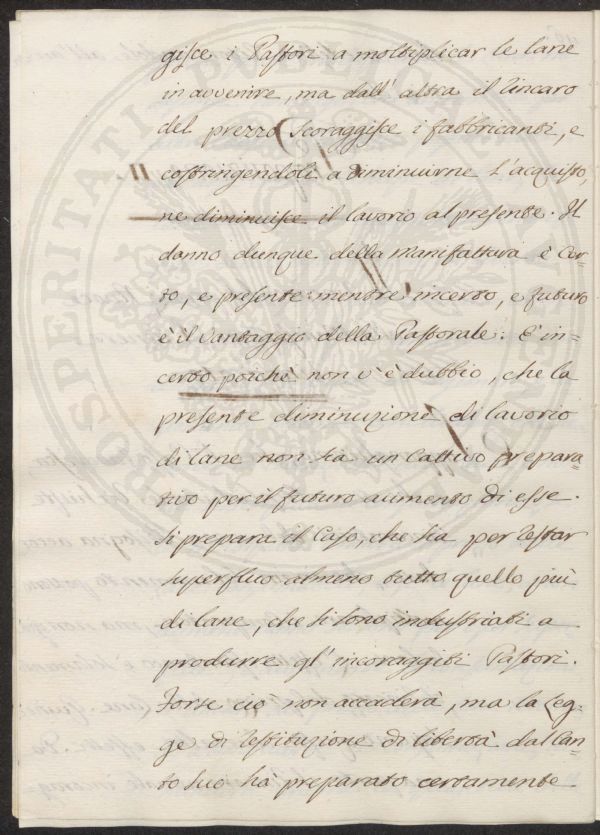 gisce i Pastori a moltiplicar le lane
in avvenire, ma dall' altra il rincaro
del prezzo scoraggisce i fabbricanti, e
costringendoli a diminuirne l'acquisto,
ne diminuisce il lavorio al presente. Il
danno dunque della manifattura è cer-
to, e presente mentre incerto, e futuro
è il vantaggio della Pastorale. È in-
certo poichè non v'è dubbio, che la
presente diminuzione di lavorio
di lane non sia un cattivo prepara-
tivo per il futuro aumento di esse.
Si prepara il caso, che sia per restar
superfluo almeno tutto quello più
di lane, che si sono industriati a
produrre gl' incoraggiti Pastori.
Forse ciò non accaderà, ma la leg-
ge di restituzione di libertà dal can-
to suo hà preparato certamente
PROSPERITATI PUBLICAE